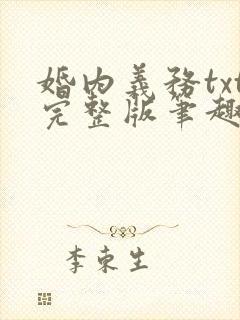 婚内義務txt
完整版筆趣
李束生